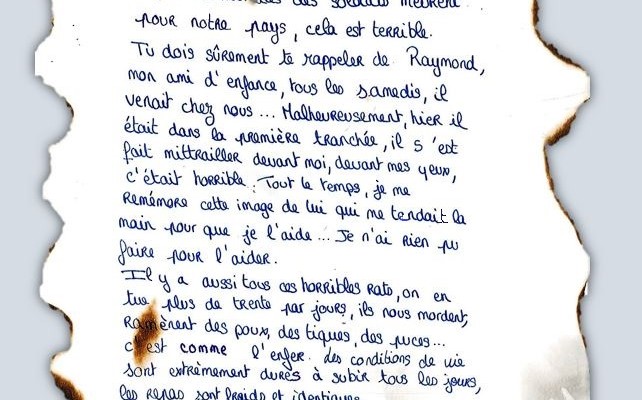 des soldats meurent
pour notre pays, cela est terrible.
Tu dois sûrement te rappeler de Raymond,
mon ami d'enfance, tous les samedis, il
venait chez nous... Malheureusement, hier il
était dans la première tranchée, il s'est
fait mittrailler devant moi, devant mes yeux,
c'était horrible. Tout le temps, je me
Remémore cette image de lui qui me tendait la
main pour que je l'aide... Je n'ai rien pu
faire pour l'aider.
Il y a aussi tous ces horribles rats, on en
tue plus de trente par jours, ils nous mordent,
Ramènent des poux, des tiques, des puces...
c'est comme l'enfer. des conditions de vie
sont extrêmement dures à subir tous les jours,
les repas sont froids et identique